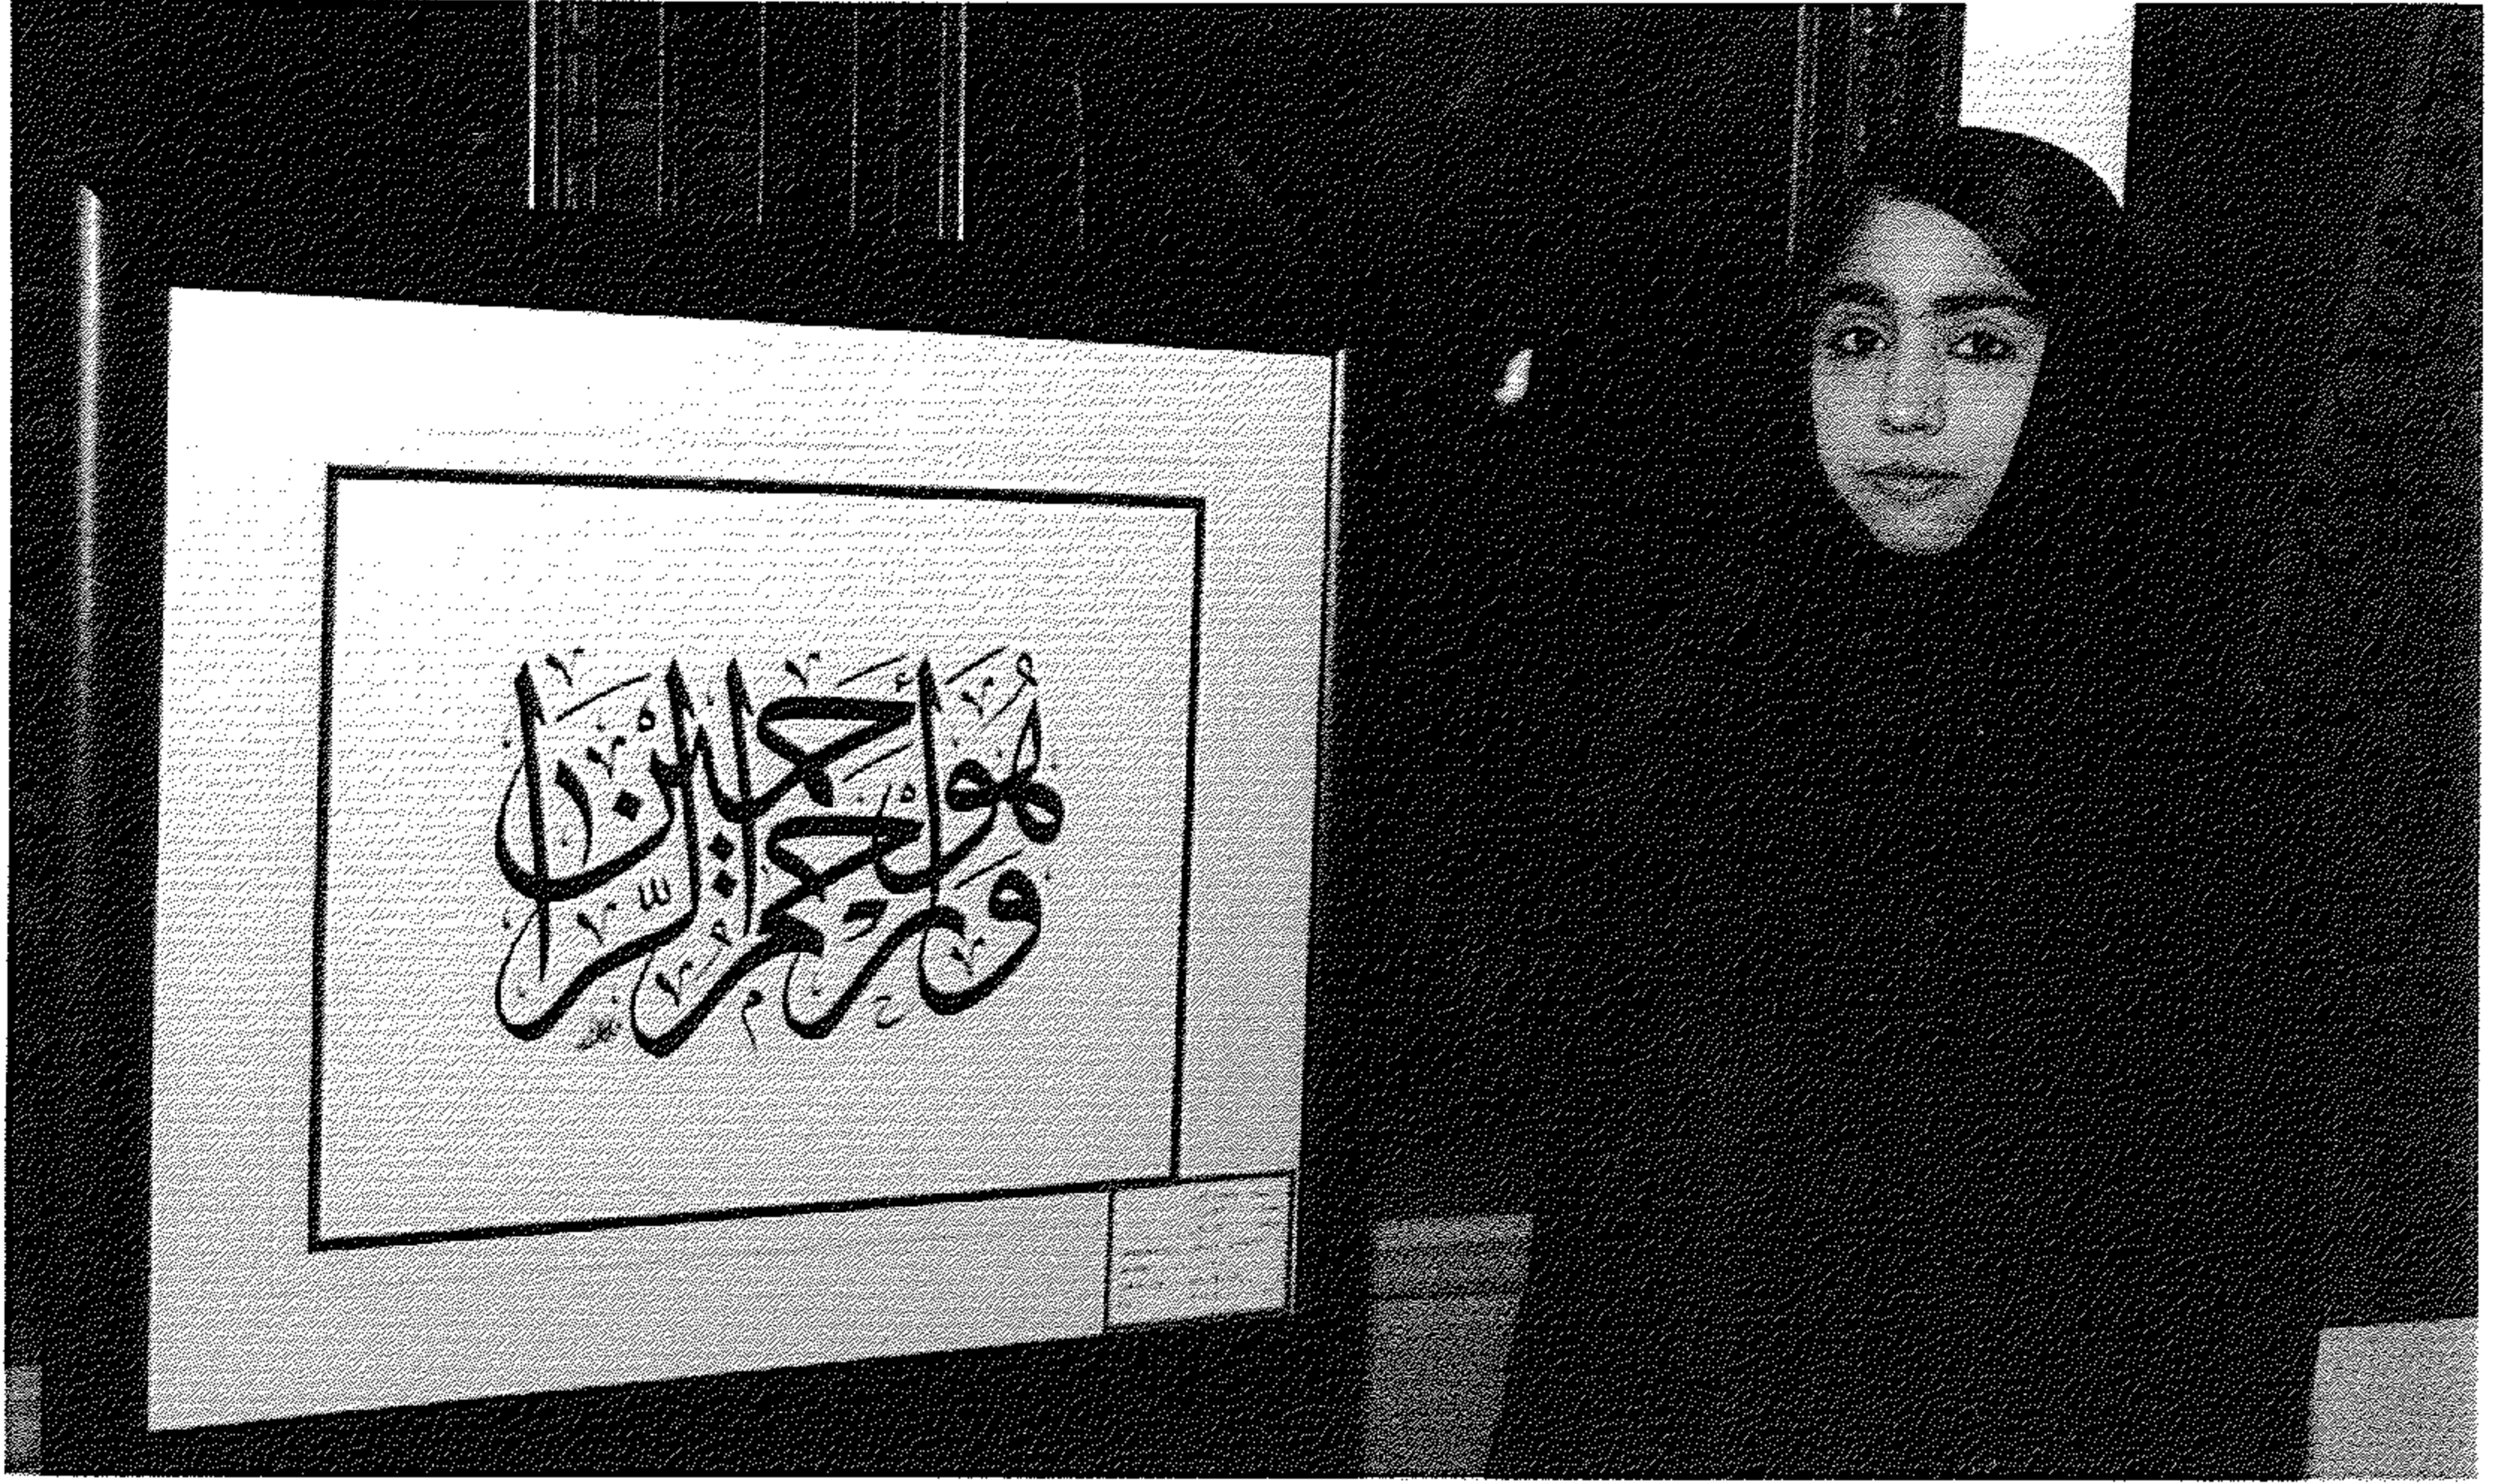 وَهُوَ أَرْحَمُ الرَّاحِمِينَ